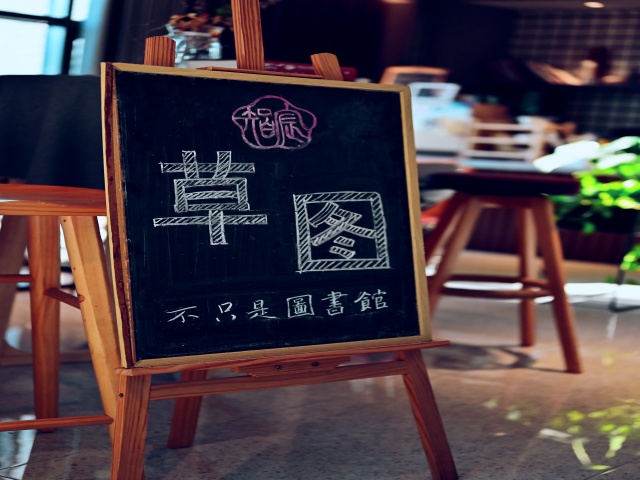 草图
不只是圖書館